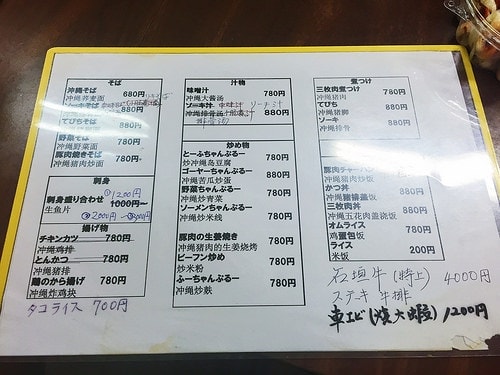 そば
沖縄そば 680円
沖縄荞麦面
ソーキそば
880円
てびちそば 880円
野菜そば
沖縄野菜面 750円
豚肉焼きそば
沖縄猪肉炒面 750円
刺身
①1200円
刺身盛り合わせ 1000円〜
生鱼片
②2000円〜
揚げ物
チキンカツ 780円
沖縄鸡排
とんかつ 780円
沖縄猪排
鶏のから揚げ 780円
沖縄炸鸡块
タコライス 700円
汁物
味噌汁 780円
沖縄大酱汤
ソーキ汁 中味汁 ソーキ汁
沖縄排骨汤 880円
排骨汤
炒め物
とーふちゃんぷるー 780円
炒沖縄岛豆腐
ゴーヤーちゃんぷるー 880円
沖縄苦瓜炒蛋
野菜ちゃんぷるー 780円
沖縄炒青菜
ソーメンちゃんぷるー 780円
沖縄炒米线
豚肉の生姜焼き 780円
沖縄猪肉的生姜烧烤
ビーフン炒め 780円
炒米粉
ふーちゃんぷるー 780円
沖縄炒麸
煮つけ
三枚肉煮つけ 780円
沖縄猪肉
てびち 880円
沖縄猪脚
ソーキ 880円
沖縄排骨
豚肉チャーハン 780円
沖縄猪肉炒饭
かつ丼 880円
沖縄猪排盖饭
三枚肉丼 880円
沖縄五花肉盖浇饭
オムライス 780円
鸡蛋包饭
ライス 200円
米饭
石垣牛(特上) 4000円
ステーキ 牛排
車エビ(烧大虾) 1200円